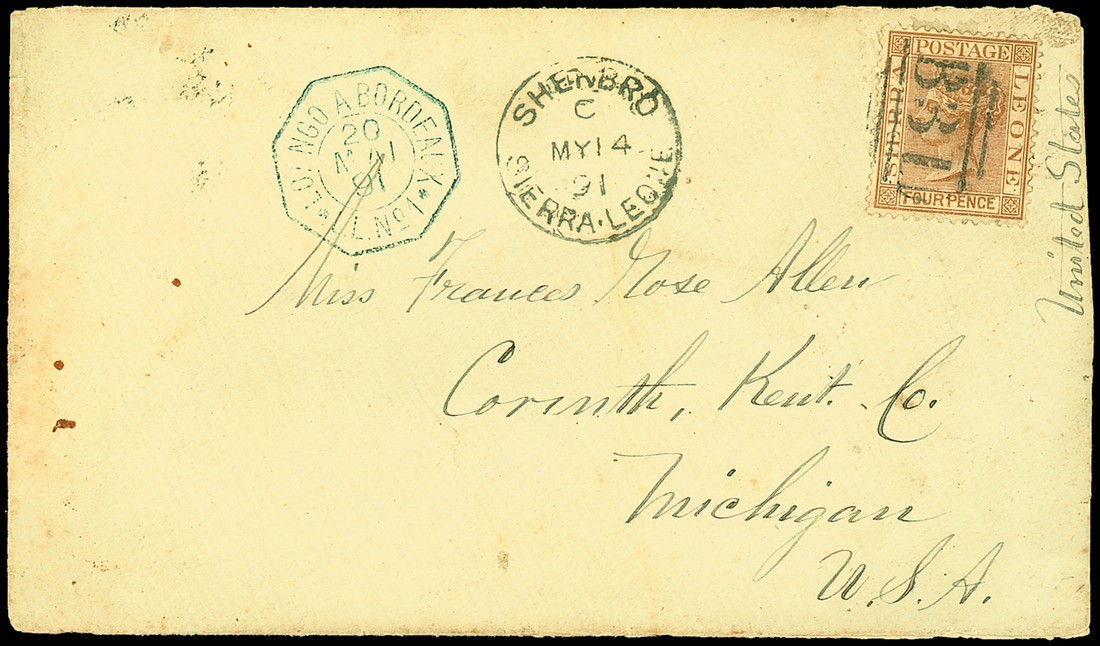 LOANGO A BORDEAUX
20
MAI
91
L.L. No 1
SHERBRO
C
MY 14
91
SIERRA·LEONE
POSTAGE
SIERRA
LEONE
FOUR PENCE
B31
United States
Miss Frances Rose Allen
Corinth, Kent. Co.
Michigan
U.S.A.